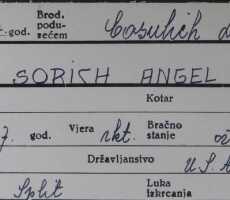 -god. Brod. podu-zećem Cosulich
SORICH ANGEL
Kotar
7. god. Vjera rkt. Bračno stanje
Državljanstvo U.S.A
Split Luka izkrcanja